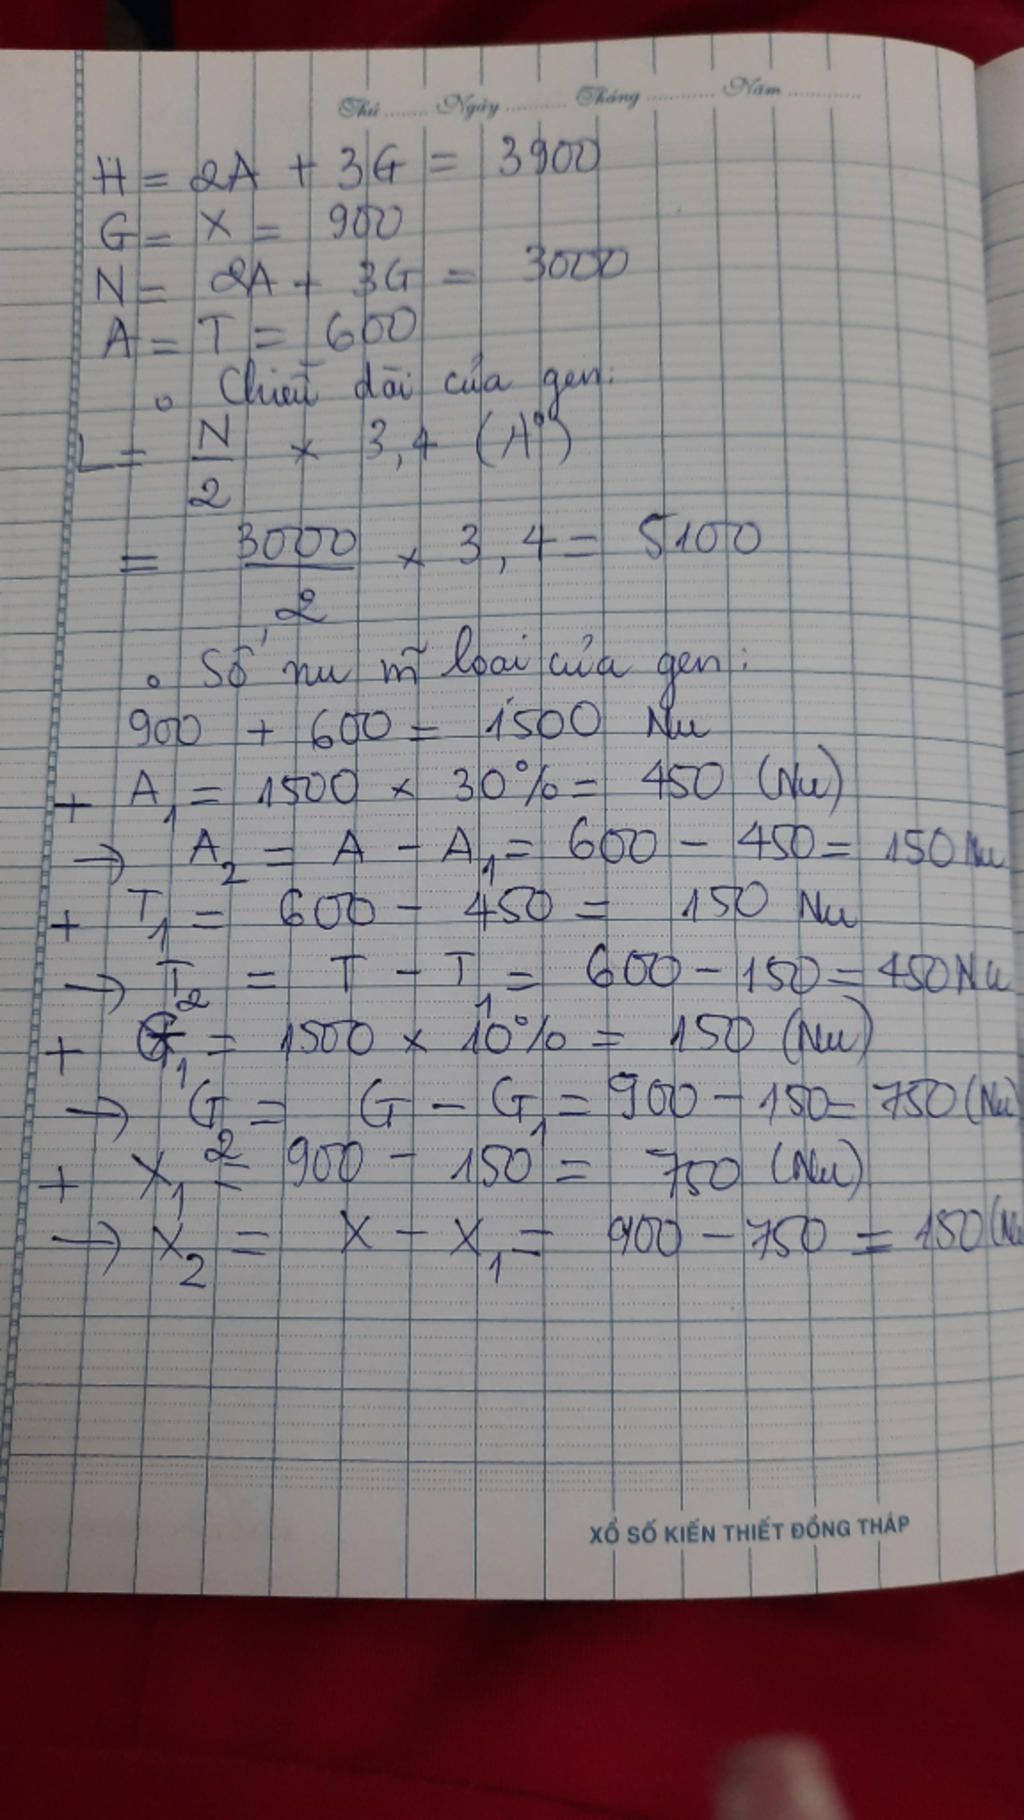 Thứ ........ Ngày ........... Tháng ............ Năm .............
H = 2A + 3G = 3900
G = X = 900
N = 2A + 3G = 3000
A = T = 600
• Chiều dài của gen:
L = N/2 × 3,4 (A°)
= 3000/2 × 3,4 = 5100
• Số nu mỗi loại của gen:
900 + 600 = 1500 Nu
+ A₁ = 1500 × 30% = 450 (Nu)
→ A₂ = A - A₁ = 600 - 450 = 150 Nu
+ T₁ = 600 - 450 = 150 Nu
→ T₂ = T - T₁ = 600 - 150 = 450 Nu
+ G₁ = 1500 × 10% = 150 (Nu)
→ G₂ = G - G₁ = 900 - 150 = 750 (Nu)
+ X₁ = 900 - 150 = 750 (Nu)
→ X₂ = X - X₁ = 900 - 750 = 150 (Nu
XỔ SỐ KIẾN THIẾT ĐỒNG THÁP